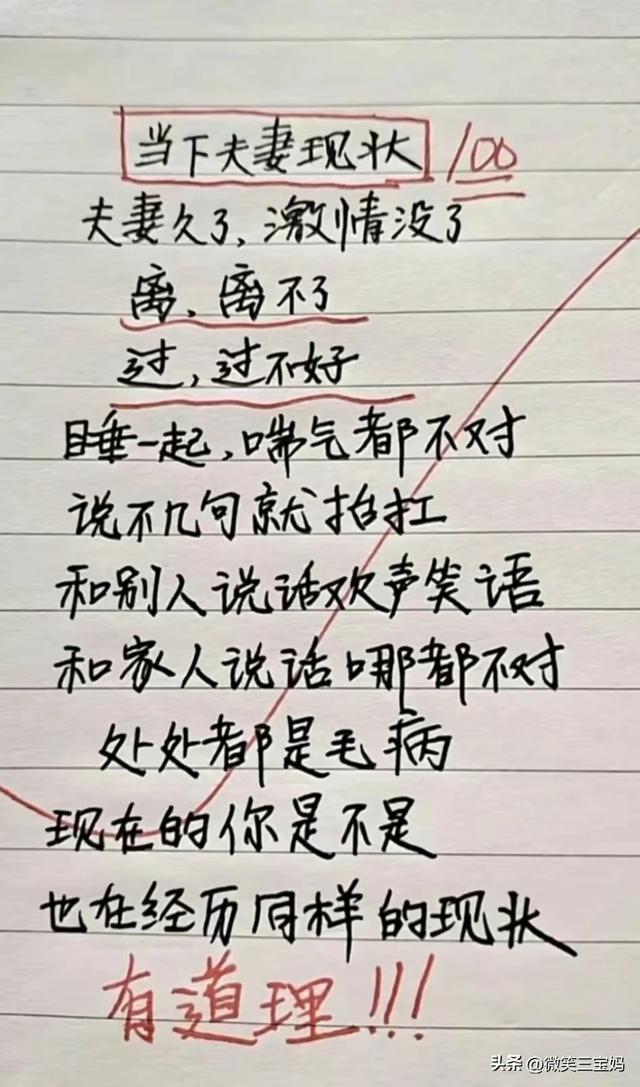 当下夫妻现状 100
夫妻久了,激情没了
离,离不了
过,过不好
睡一起,喘气都不对
说不几句就抬扛
和别人说话欢声笑语
和家人说话哪都不对
处处都是毛病
现在的你是不是
也在经历同样的现状
有道理!!!
头条 @微笑三宝妈